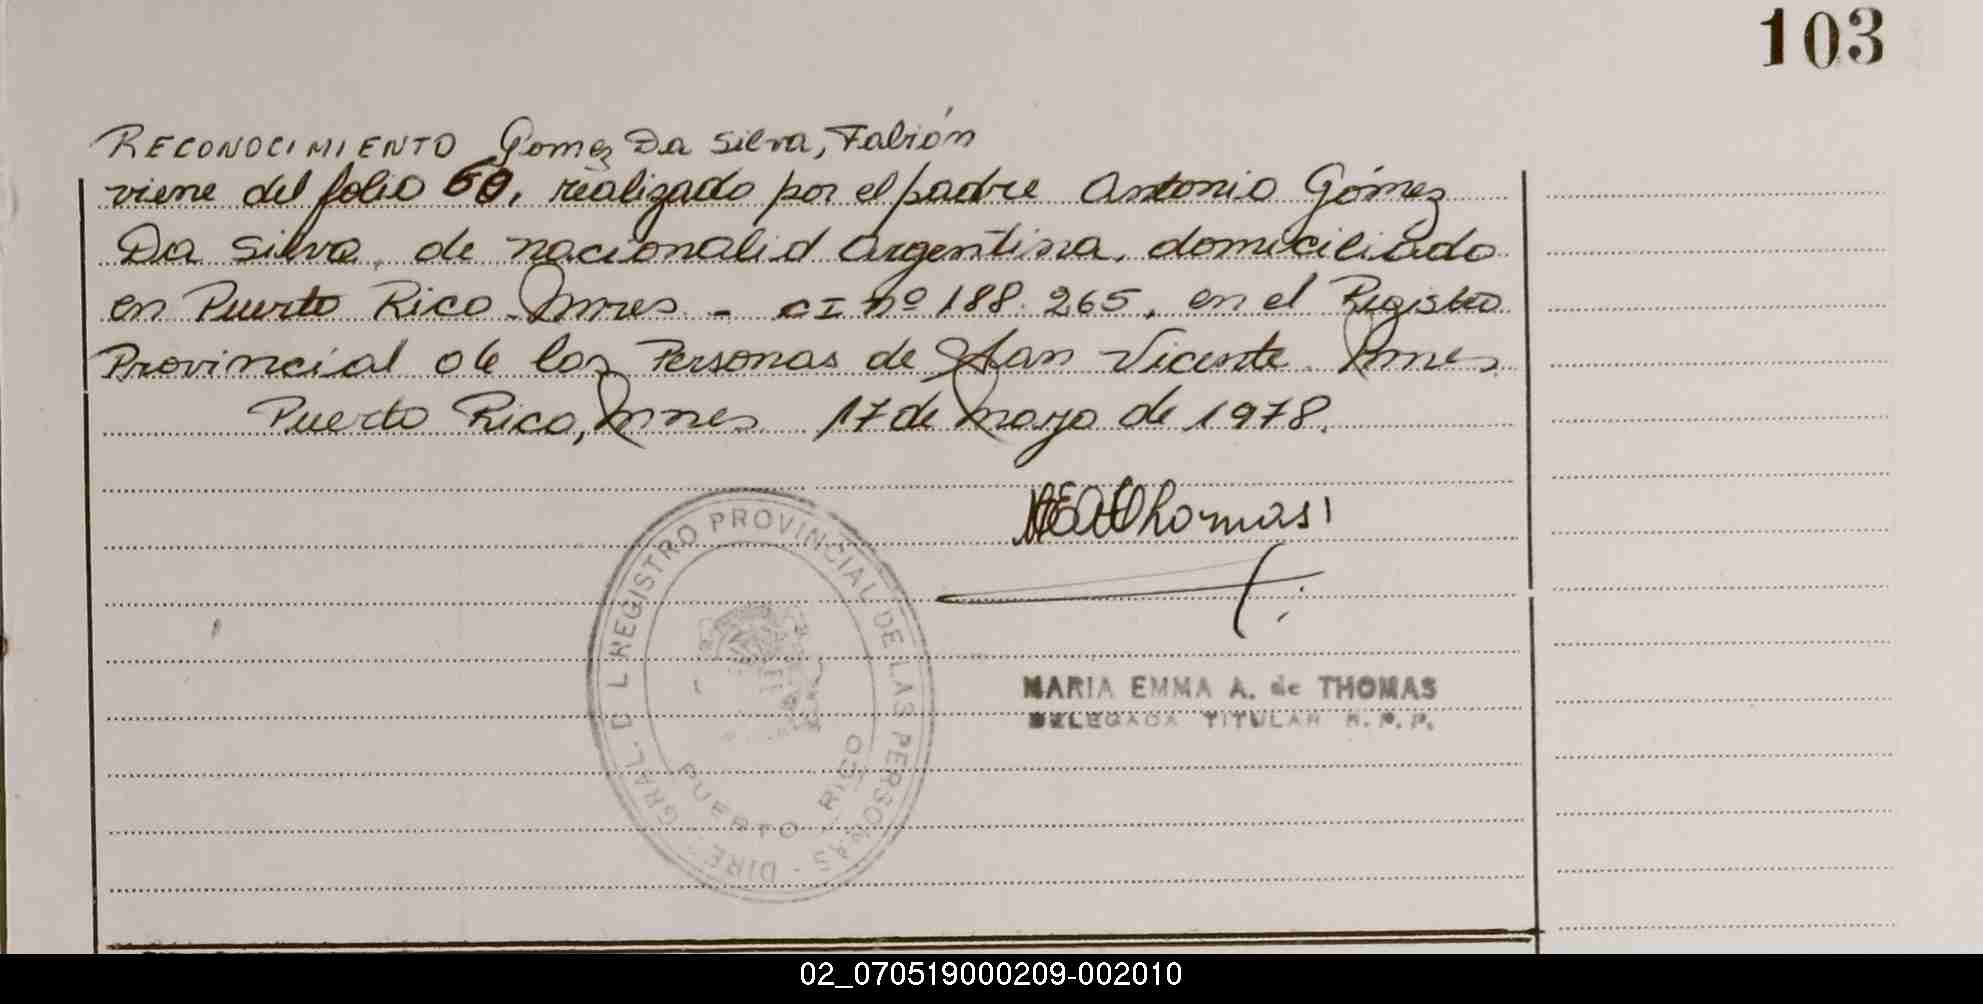 103
RECONOCIMIENTO Gomez Da Silva, Fabián
viene del folio 60, realizado por el padre Antonio Gómez
Da Silva, de nacionalid argentina, domiciliado
en Puerto Rico Mnes - CI nº 188.265, en el Registro
Provincial de las Personas de San Vicente Mnes,
Puerto Rico, Mnes 17 de mayo de 1978.
MEAThomas
REGISTRO PROVINCIAL DE LAS PERSONAS - DIRE. GRAL. DEL
PUERTO RICO
MARIA EMMA A. de THOMAS
DELEGADA TITULAR R. P. P.
02_070519000209-002010